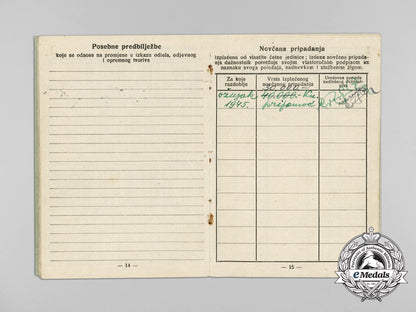 Posebne predbilježbe
koje se odnose na promjene u izkazu odiela, odjevnog
i opremnog tvoriva
— 14 —
Novčana pripadanja
izplaćena od vlastite četne jedinice; izdana novčana pripada-
nja dužnostnik potvrđuje svojim vlastoručnim podpisom uz
naznaku svoga položaja, nadnevkom i službenim žigom.
Za koje
razdoblje
Vrsta izplaćenog
novčanog pripadanja
30.000.-
ožujak 40.000.- Kn
1945.
— 15 —
eMedals